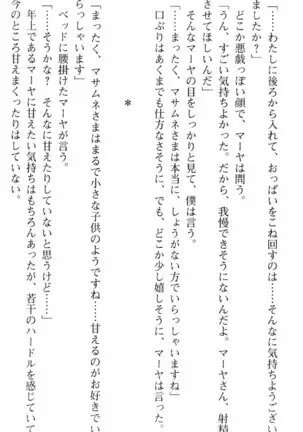 「……わたしに後ろから入れて、おっぱいをこね回すのは……そんなに気持ちようござい
ましたか？」
どこか悪戯っぽい顔で、マーヤは問う。
「うん。すごい気持ちよかった。だから、我慢できそうにないんだよ。マーヤさん、射精
させてほしいんだ」
そんなマーヤの目をしっかりと見て、僕は言う。
「まったく、マサムネさまは本当に、しょうがない方でいらっしゃいますね」
口ぶりはあくまでも仕方なさそうに、でも、どこか少し嬉しそうに、マーヤは言った。
＊
「まったく、マサムネさまはまるで小さな子供のようですね……甘えるのがお好きでい
らっしゃいます」
ベッドに腰掛けたマーヤが言う。
「……そうかな？　そんなに甘えたりしていないと思うけど……」
年上であるマーヤに甘えたい気持ちはもちろんあったが、若干のハードルを感じていて
今のところ甘えまくったりはしていない。